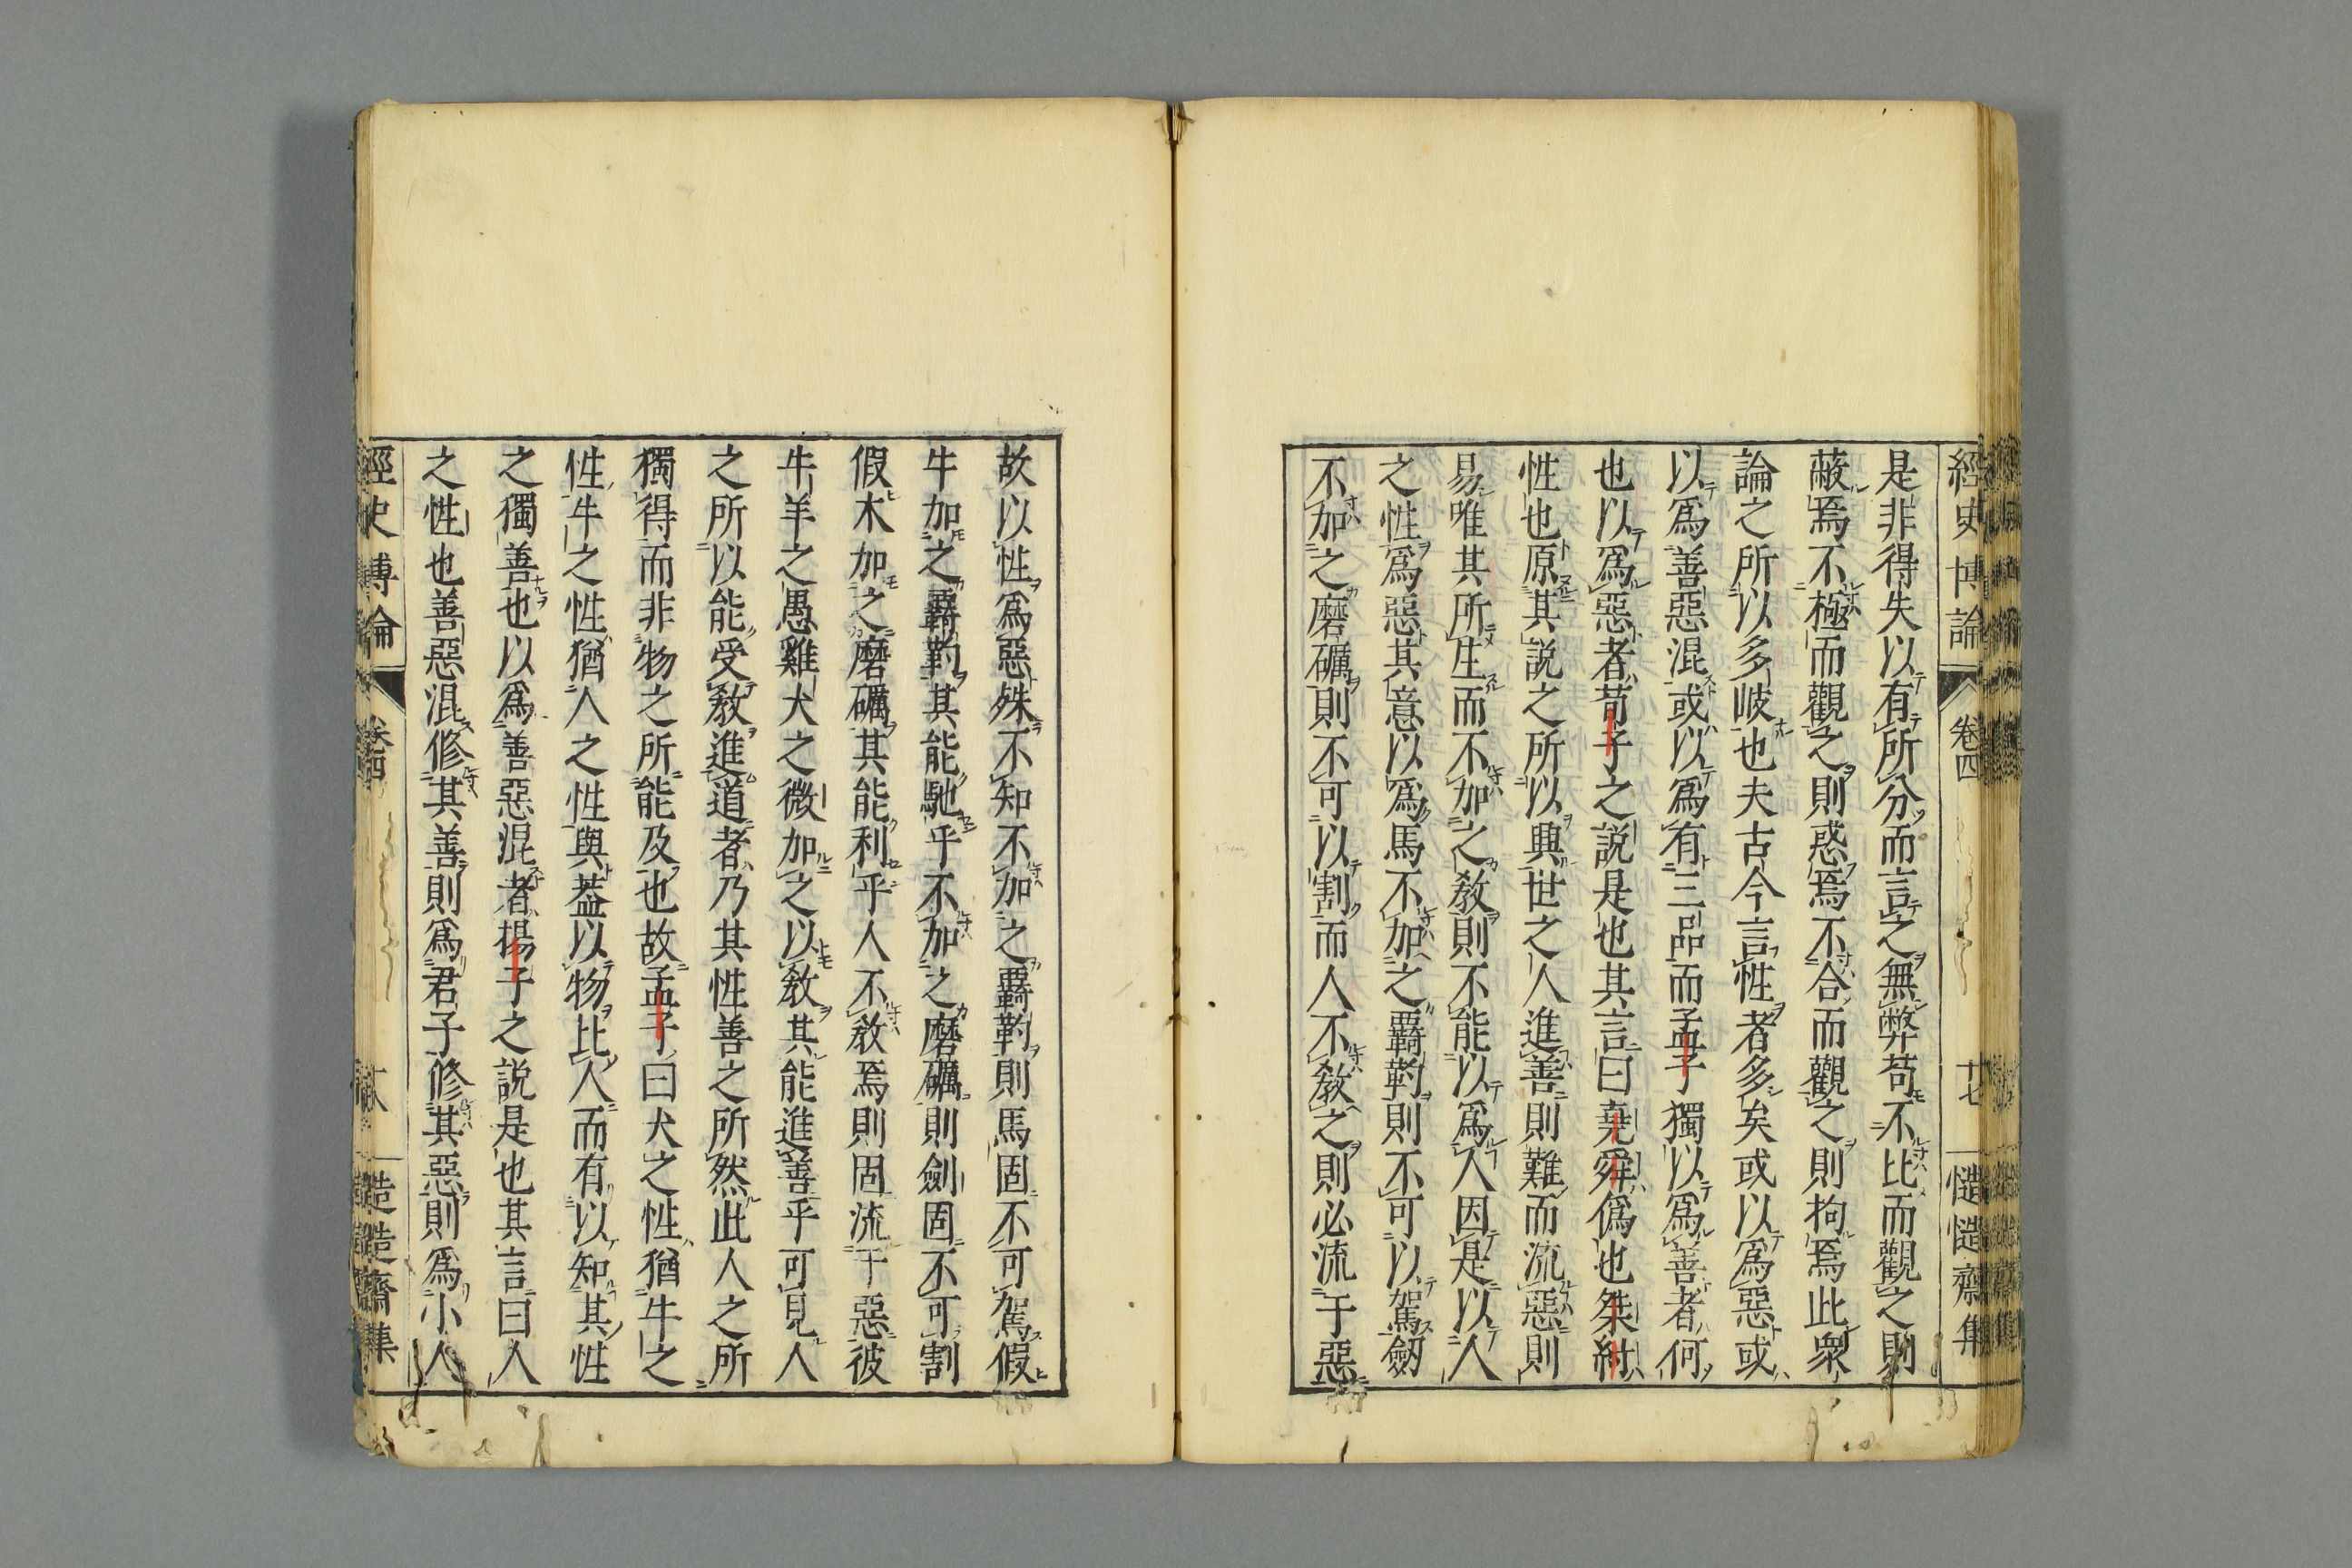 經史博論
卷四
十七
慥慥齋集
是非得失以有所分而言之無弊苟不比而觀之則
蔽焉不極而觀之則惑焉不合而觀之則拘焉此衆
論之所以多岐也夫古今言性者多矣或以爲惡或
以爲善惡混或以爲有三品而孟子獨以爲善者何
也以爲惡者荀子之說是也其言曰堯舜僞也桀紂
性也原其說之所以興世之人進善則難而流惡則
易唯其所生而不加之敎則不能以爲人因是以人
之性爲惡其意以爲馬不加之覊靮則不可以駕劒
不加之磨礪則不可以割而人不敎之則必流于惡
故以性爲惡殊不知不加之覊靮則馬固不可駕假
牛加之覊靮其能馳乎不加之磨礪則劍固不可割
假木加之磨礪其能利乎人不敎焉則固流于惡彼
牛羊之愚雞犬之微加之以敎其能進善乎可見人
之所以能受敎進道者乃其性善之所然此人之所
獨得而非物之所能及也故孟子曰犬之性猶牛之
性牛之性猶人之性與葢以物比人而有以知其性
之獨善也以爲善惡混者揚子之說是也其言曰人
之性也善惡混修其善則爲君子修其惡則爲小人
經史博論
卷四
慥慥齋集